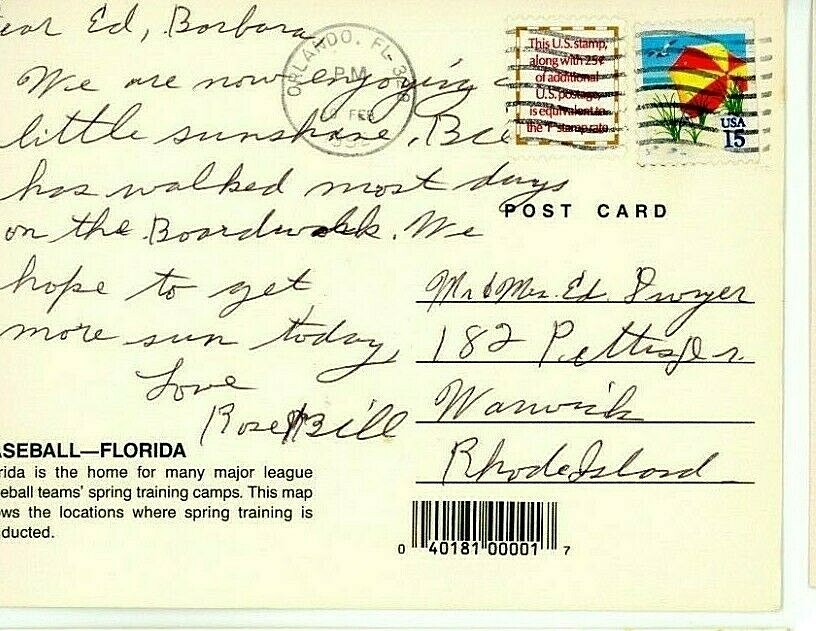 ear Ed, Barbara
We are now enjoying a
little sunshine, Bill
has walked most days
on the Boardwalk. We
hope to get
more sun today,
Love
Rose & Bill
ASEBALL—FLORIDA
rida is the home for many major league
eball teams' spring training camps. This map
ows the locations where spring training is
ducted.
ORLANDO, FL 328
PM
FEB
This U.S. stamp,
along with 25¢
of additional
U.S. postage,
is equivalent to
the 'F' stamp rate
USA
15
POST CARD
Mr & Mrs. Ed. Dwyer
182 Pettis Dr.
Warwick
Rhode Island
0 40181 00001 7